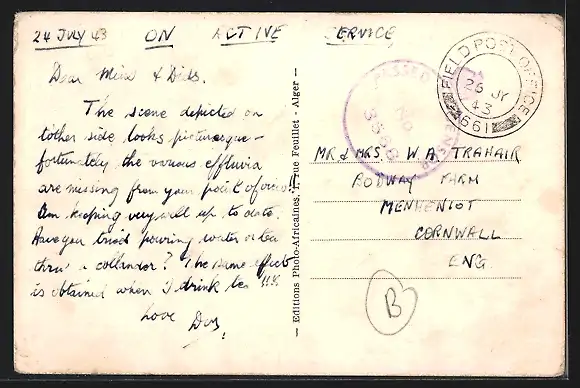 24 JULY 43 ON ACTIVE SERVICE
Dear Mim & Dids.
The scene depicted on
tother side looks picturesque –
fortunately the various effluvia
are missing from your point of view!!
Am keeping very well up to date.
Have you tried pouring water or tea
thru' a collander? The same effect
is obtained when I drink tea !!!
Love
— Editions Photo-Africaines, Rue Feuillet - Alger —
PASSED
FIELD POST OFFICE
26 JY
43
199
MR & MRS. W. A. TRAHAIR
BODWAY FARM
MENHENIOT
CORNWALL
ENG.
B